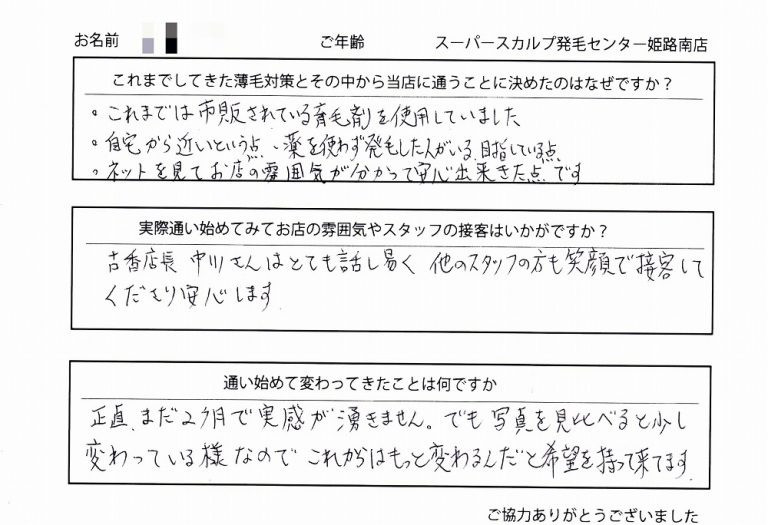 お名前 ご年齢 スーパースカルプ発毛センター姫路南店
これまでしてきた薄毛対策とその中から当店に通うことに決めたのはなぜですか?
・これまでは市販されている育毛剤を使用していました
・自宅から近いという点、薬を使わず発毛した人がいる、目指している点
・ネットを見てお店の雰囲気が分かって安心出来きた点です
実際通い始めてみてお店の雰囲気やスタッフの接客はいかがですか?
古香店長 中川さんはとても話し易く 他のスタッフの方も笑顔で接客して
くださり安心します
通い始めて変わってきたことは何ですか
正直、まだ2ヶ月で実感が湧きません。でも 写真を見比べると少し
変わっている様なので これからはもっと変わるんだと希望を持って来てます
ご協力ありがとうございました